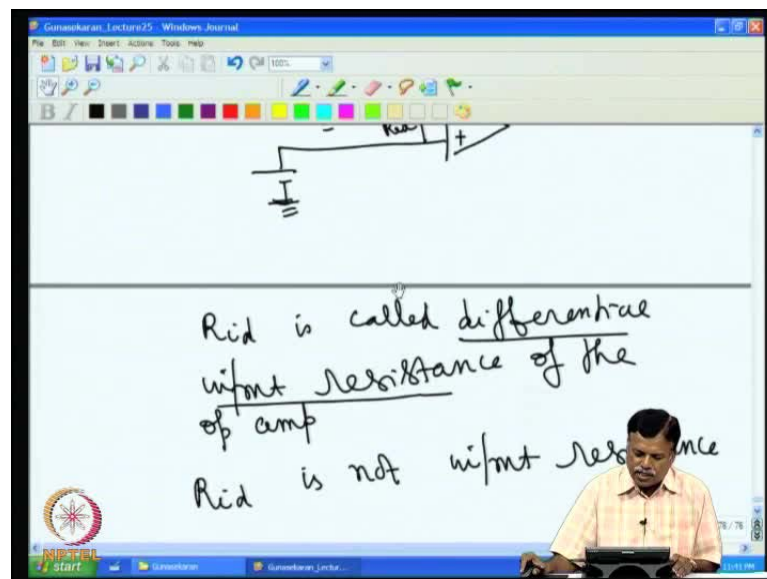 Gunasekaran_Lecture25 - Windows Journal
File Edit View Insert Actions Tools Help
100%
B I
Rid
+
Rid is called differential
input resistance of the
op amp
Rid is not input res nce
78 / 78
NPTEL
start Gunasekaran Gunasekaran_Lectur... 11:41 PM